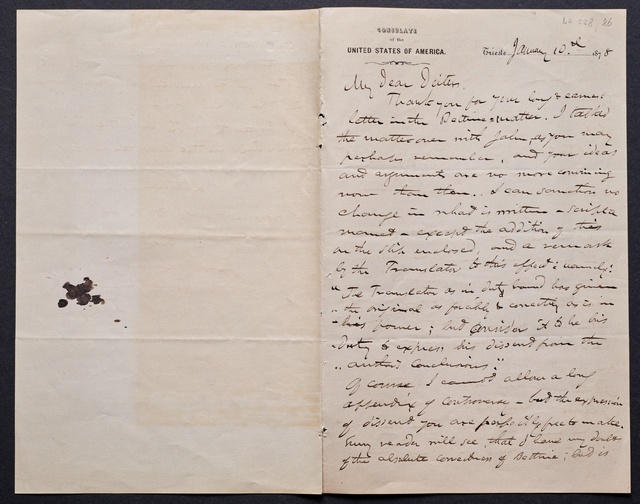 CONSULATE
of the
UNITED STATES OF AMERICA.
Trieste, January 10th 1878
My Dear Deiters,
Thank you for your long & earnest
letter in the Bettina matter. I talked
the matter over with Jahn, as you may
perhaps remember, and your ideas
and arguments are no more convincing
now than then. I can sanction no
change in what is written – scripta
manent – except the addition of this
on the slip enclosed, and a remark
by the Translator to this effect: namely:
"The Translator as in duty bound has given
"the original as forcibly & correctly as is in
"his power; but considers it to be his
duty to express his dissent from the
"author's conclusions."
Of course I cannot allow a long
appendix of controversy – but the expression
of dissent you are perfectly free to make.
Every reader will see, that I have my doubts
of the absolute correctness of Bettina; but is